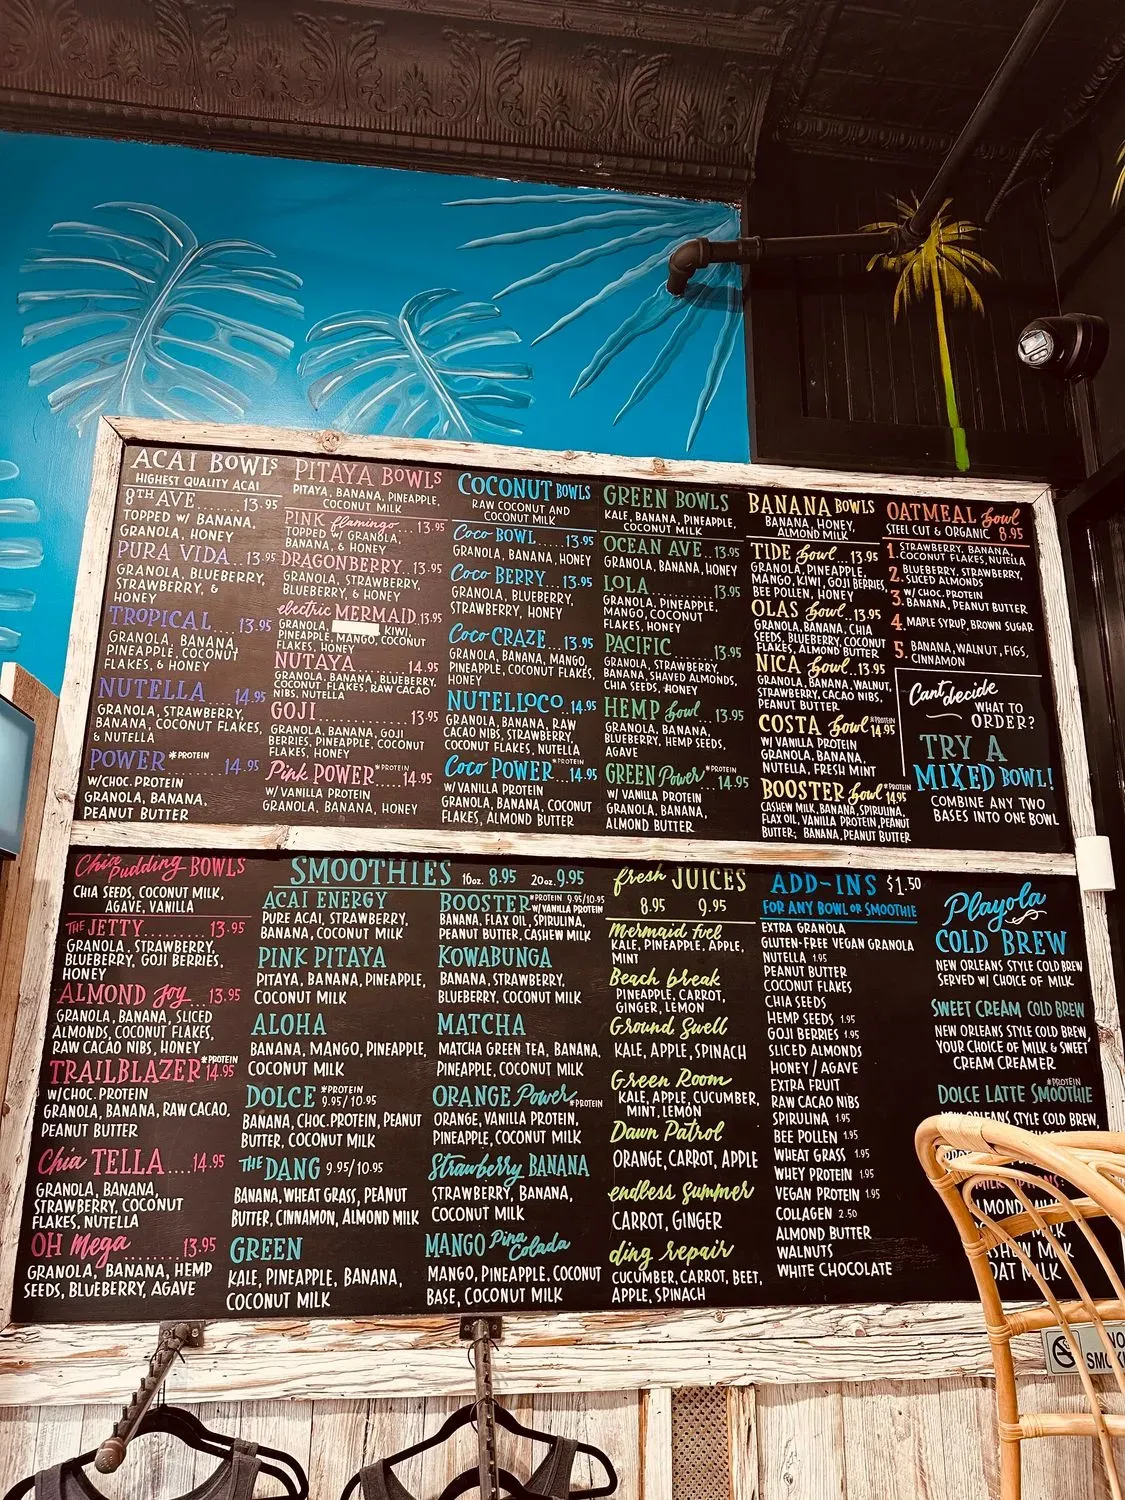 ACAI BOWLS
HIGHEST QUALITY ACAI
8TH AVE 13.95
TOPPED W/ BANANA,
GRANOLA, HONEY
PURA VIDA 13.95
GRANOLA, BLUEBERRY,
STRAWBERRY, &
HONEY
TROPICAL 13.95
GRANOLA, BANANA,
PINEAPPLE, COCONUT
FLAKES, & HONEY
NUTELLA 14.95
GRANOLA, STRAWBERRY,
BANANA, COCONUT FLAKES,
& NUTELLA
POWER *PROTEIN 14.95
W/CHOC. PROTEIN
GRANOLA, BANANA,
PEANUT BUTTER
PITAYA BOWLS
PITAYA, BANANA, PINEAPPLE,
COCONUT MILK
PINK flamingo 13.95
TOPPED W/ GRANOLA,
BANANA, & HONEY
DRAGONBERRY 13.95
GRANOLA, STRAWBERRY,
BLUEBERRY, & HONEY
electric MERMAID 13.95
GRANOLA, KIWI,
PINEAPPLE, MANGO, COCONUT
FLAKES, HONEY
NUTAYA 14.95
GRANOLA, BANANA, BLUEBERRY,
COCONUT FLAKES, RAW CACAO
NIBS, NUTELLA
GOJI 13.95
GRANOLA, BANANA, GOJI
BERRIES, PINEAPPLE, COCONUT
FLAKES, HONEY
Pink POWER *PROTEIN 14.95
W/ VANILLA PROTEIN
GRANOLA, BANANA, HONEY
COCONUT BOWLS
RAW COCONUT AND
COCONUT MILK
Coco BOWL 13.95
GRANOLA, BANANA, HONEY
Coco BERRY 13.95
GRANOLA, BLUEBERRY,
STRAWBERRY, HONEY
Coco CRAZE 13.95
GRANOLA, BANANA, MANGO,
PINEAPPLE, COCONUT FLAKES,
HONEY
NUTELLOCO 14.95
GRANOLA, BANANA, RAW
CACAO NIBS, STRAWBERRY,
COCONUT FLAKES, NUTELLA
Coco POWER *PROTEIN 14.95
W/ VANILLA PROTEIN
GRANOLA, BANANA, COCONUT
FLAKES, ALMOND BUTTER
GREEN BOWLS
KALE, BANANA, PINEAPPLE,
COCONUT MILK
OCEAN AVE 13.95
GRANOLA, BANANA, HONEY
LOLA 13.95
GRANOLA, PINEAPPLE,
MANGO, COCONUT
FLAKES, HONEY
PACIFIC 13.95
GRANOLA, STRAWBERRY,
BANANA, SHAVED ALMONDS,
CHIA SEEDS, HONEY
HEMP bowl 13.95
GRANOLA, BANANA,
BLUEBERRY, HEMP SEEDS,
AGAVE
GREEN Power *PROTEIN 14.95
W/ VANILLA PROTEIN
GRANOLA, BANANA,
ALMOND BUTTER
BANANA BOWLS
BANANA, HONEY,
ALMOND MILK
TIDE bowl 13.95
GRANOLA, PINEAPPLE,
MANGO, KIWI, GOJI BERRIES,
BEE POLLEN, HONEY
OLAS bowl 13.95
GRANOLA, BANANA, CHIA
SEEDS, BLUEBERRY, COCONUT
FLAKES, ALMOND BUTTER
NICA bowl 13.95
GRANOLA, BANANA, WALNUT,
STRAWBERRY, CACAO NIBS,
PEANUT BUTTER
COSTA bowl *PROTEIN 14.95
W/ VANILLA PROTEIN
GRANOLA, BANANA,
NUTELLA, FRESH MINT
BOOSTER bowl *PROTEIN 14.95
CASHEW MILK, BANANA, SPIRULINA,
FLAX OIL, VANILLA PROTEIN, PEANUT
BUTTER; BANANA, PEANUT BUTTER
OATMEAL bowl
STEEL CUT & ORGANIC 8.95
1. STRAWBERRY, BANANA,
COCONUT FLAKES, NUTELLA
2. BLUEBERRY, STRAWBERRY,
SLICED ALMONDS
3. W/ CHOC. PROTEIN
BANANA, PEANUT BUTTER
4. MAPLE SYRUP, BROWN SUGAR
5. BANANA, WALNUT, FIGS,
CINNAMON
Can't decide
WHAT TO
ORDER?
TRY A
MIXED BOWL!
COMBINE ANY TWO
BASES INTO ONE BOWL
Chia Pudding BOWLS
CHIA SEEDS, COCONUT MILK,
AGAVE, VANILLA
THE JETTY 13.95
GRANOLA, STRAWBERRY,
BLUEBERRY, GOJI BERRIES,
HONEY
ALMOND Joy 13.95
GRANOLA, BANANA, SLICED
ALMONDS, COCONUT FLAKES,
RAW CACAO NIBS, HONEY
TRAILBLAZER *PROTEIN 14.95
W/CHOC. PROTEIN
GRANOLA, BANANA, RAW CACAO,
PEANUT BUTTER
Chia TELLA 14.95
GRANOLA, BANANA,
STRAWBERRY, COCONUT
FLAKES, NUTELLA
OH Mega 13.95
GRANOLA, BANANA, HEMP
SEEDS, BLUEBERRY, AGAVE
SMOOTHIES 16oz. 8.95 20oz. 9.95
ACAI ENERGY
PURE ACAI, STRAWBERRY,
BANANA, COCONUT MILK
PINK PITAYA
PITAYA, BANANA, PINEAPPLE,
COCONUT MILK
ALOHA
BANANA, MANGO, PINEAPPLE,
COCONUT MILK
DOLCE *PROTEIN 9.95/10.95
BANANA, CHOC. PROTEIN, PEANUT
BUTTER, COCONUT MILK
THE DANG 9.95/10.95
BANANA, WHEAT GRASS, PEANUT
BUTTER, CINNAMON, ALMOND MILK
GREEN
KALE, PINEAPPLE, BANANA,
COCONUT MILK
BOOSTER *PROTEIN 9.95/10.95
W/ VANILLA PROTEIN
BANANA, FLAX OIL, SPIRULINA,
PEANUT BUTTER, CASHEW MILK
KOWABUNGA
BANANA, STRAWBERRY,
BLUEBERRY, COCONUT MILK
MATCHA
MATCHA GREEN TEA, BANANA,
PINEAPPLE, COCONUT MILK
ORANGE Power *PROTEIN
ORANGE, VANILLA PROTEIN,
PINEAPPLE, COCONUT MILK
Strawberry BANANA
STRAWBERRY, BANANA,
COCONUT MILK
MANGO Pina Colada
MANGO, PINEAPPLE, COCONUT
BASE, COCONUT MILK
fresh JUICES
8.95 9.95
Mermaid fuel
KALE, PINEAPPLE, APPLE,
MINT
Beach break
PINEAPPLE, CARROT,
GINGER, LEMON
Ground Swell
KALE, APPLE, SPINACH
Green Room
KALE, APPLE, CUCUMBER,
MINT, LEMON
Dawn Patrol
ORANGE, CARROT, APPLE
endless summer
CARROT, GINGER
ding repair
CUCUMBER, CARROT, BEET,
APPLE, SPINACH
ADD-INS $1.50
FOR ANY BOWL OR SMOOTHIE
EXTRA GRANOLA
GLUTEN-FREE VEGAN GRANOLA
NUTELLA 1.95
PEANUT BUTTER
COCONUT FLAKES
CHIA SEEDS
HEMP SEEDS 1.95
GOJI BERRIES 1.95
SLICED ALMONDS
HONEY / AGAVE
EXTRA FRUIT
RAW CACAO NIBS
SPIRULINA 1.95
BEE POLLEN 1.95
WHEAT GRASS 1.95
WHEY PROTEIN 1.95
VEGAN PROTEIN 1.95
COLLAGEN 2.50
ALMOND BUTTER
WALNUTS
WHITE CHOCOLATE
Playola
COLD BREW
NEW ORLEANS STYLE COLD BREW
SERVED W/ CHOICE OF MILK
SWEET CREAM COLD BREW
NEW ORLEANS STYLE COLD BREW,
YOUR CHOICE OF MILK & SWEET
CREAM CREAMER
DOLCE LATTE SMOOTHIE *PROTEIN
NEW ORLEANS STYLE COLD BREW,
MILK OPTIONS:
ALMOND MILK
CASHEW MILK
OAT MILK
NO